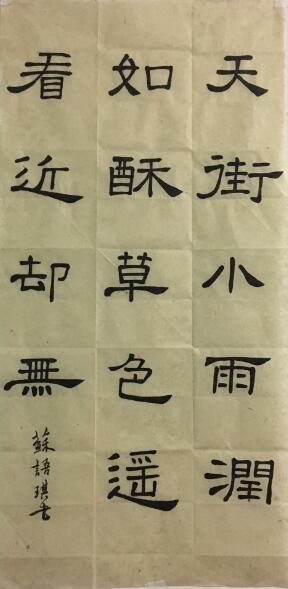 天街小雨潤
如酥草色遥
看近却無
蘇語琪书